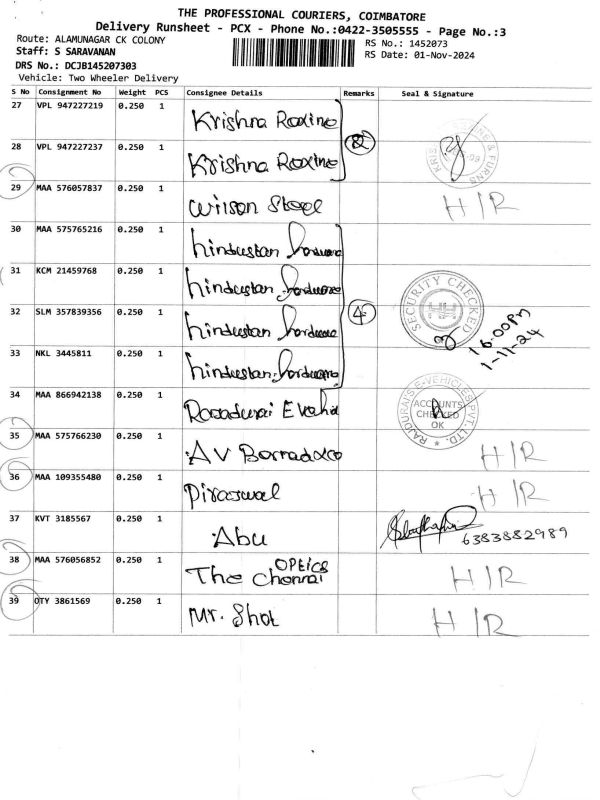 THE PROFESSIONAL COURIERS, COIMBATORE
Delivery Runsheet - PCX - Phone No.:0422-3505555 - Page No.:3
Route: ALAMUNAGAR CK COLONY
RS No.: 1452073
Staff: S SARAVANAN
RS Date: 01-Nov-2024
DRS No.: DCJB145207303
Vehicle: Two Wheeler Delivery
S No Consignment No Weight PCS Consignee Details Remarks Seal & Signature
27 VPL 947227219 0.250 1 Krishna Roxine
28 VPL 947227237 0.250 1 Krishna Roxine
2
& FURNS
29 MAA 576057837 0.250 1 Wilson Steel H/R
30 MAA 575765216 0.250 1 hindustan hardware
31 KCM 21459768 0.250 1 hindustan hardware
32 SLM 357839356 0.250 1 hindustan hardware
4
SECURITY CHECKED
HH
16.00pm
1-11-24
33 NKL 3445811 0.250 1 hindustan hardware
34 MAA 866942138 0.250 1
RAJDURAI'S E-VEHICLES PVT. LTD.
ACCOUNTS
CHECKED
OK
35 MAA 575766230 0.250 1 AV H/R
36 MAA 109355480 0.250 1 H/R
37 KVT 3185567 0.250 1 Abu 6383882989
38 MAA 576056852 0.250 1 The Chennai OPtics H/R
39 OTY 3861569 0.250 1 Mr. H/R